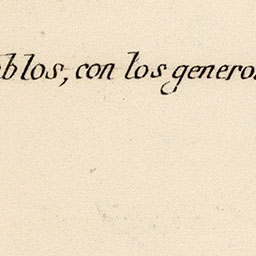 blos, con los genero